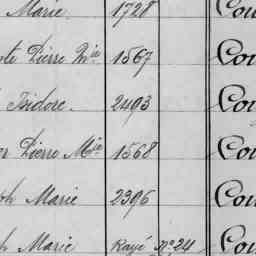 Marie. 1728 Cou
te Pierre Mie 1567 Cou
Isidore. 2493 Cou
or Pierre Mie 1568 Cou
ph Marie 2396 Cou
h Marie Rayé no 24 Cou